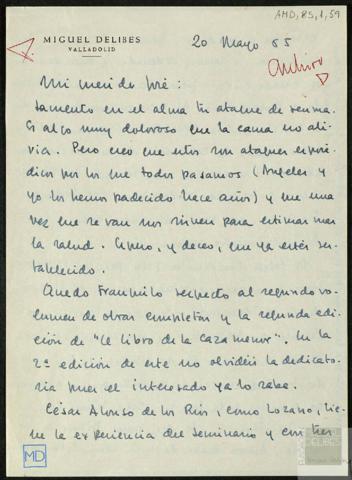 AMD, 85, 1, 59
MIGUEL DELIBES
VALLADOLID
20 Mayo 65
Archivo
Mi querido José:
Lamento en el alma tu ataque de reuma.
Es algo muy doloroso que la cama no ali-
via. Pero creo que estos son ataques esporá-
dicos por los que todos pasamos (Angeles y
yo los hemos padecido hace años) y que una
vez que se van nos sirven para estimar más
la salud. Espero, y deseo, que ya estés res-
tablecido.
Quedo tranquilo respecto al segundo vo-
lumen de obras completas y la segunda edi-
ción de "El libro de la caza menor". En la
2ª edición de este no olvidéis la dedicato-
ria pues el interesado ya lo sabe.
César Alonso de los Ríos, como Lozano, tie-
ne la experiencia del seminario y con tres
MD
DELIBES